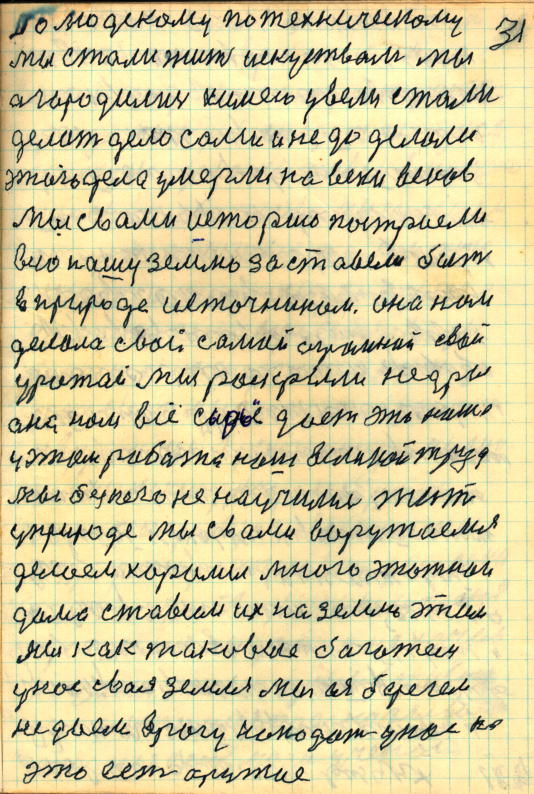 31
По людскому по техническому
мы стали жит искуством мы
агародилис химею увели стали
делат дело сами и не до делали
этого дела умерли на веки веков
Мы свами историю построели
всю нашу землю заставели быт
в природе источником. она нам
делала свой самой огромной свой
урожай мы раскрыли недры
ана нам всё сырьё дает это наша
у этом работа наш великой труд
мы бунего не научилис жит
уприроде мы свами воружаемся
делаем харомы много этажнаи
дома ставем их на землю этим
мы как таковые багатеи
унас своя земля мы ея берегем
не даем врагу нападат унас на
это ест аружие